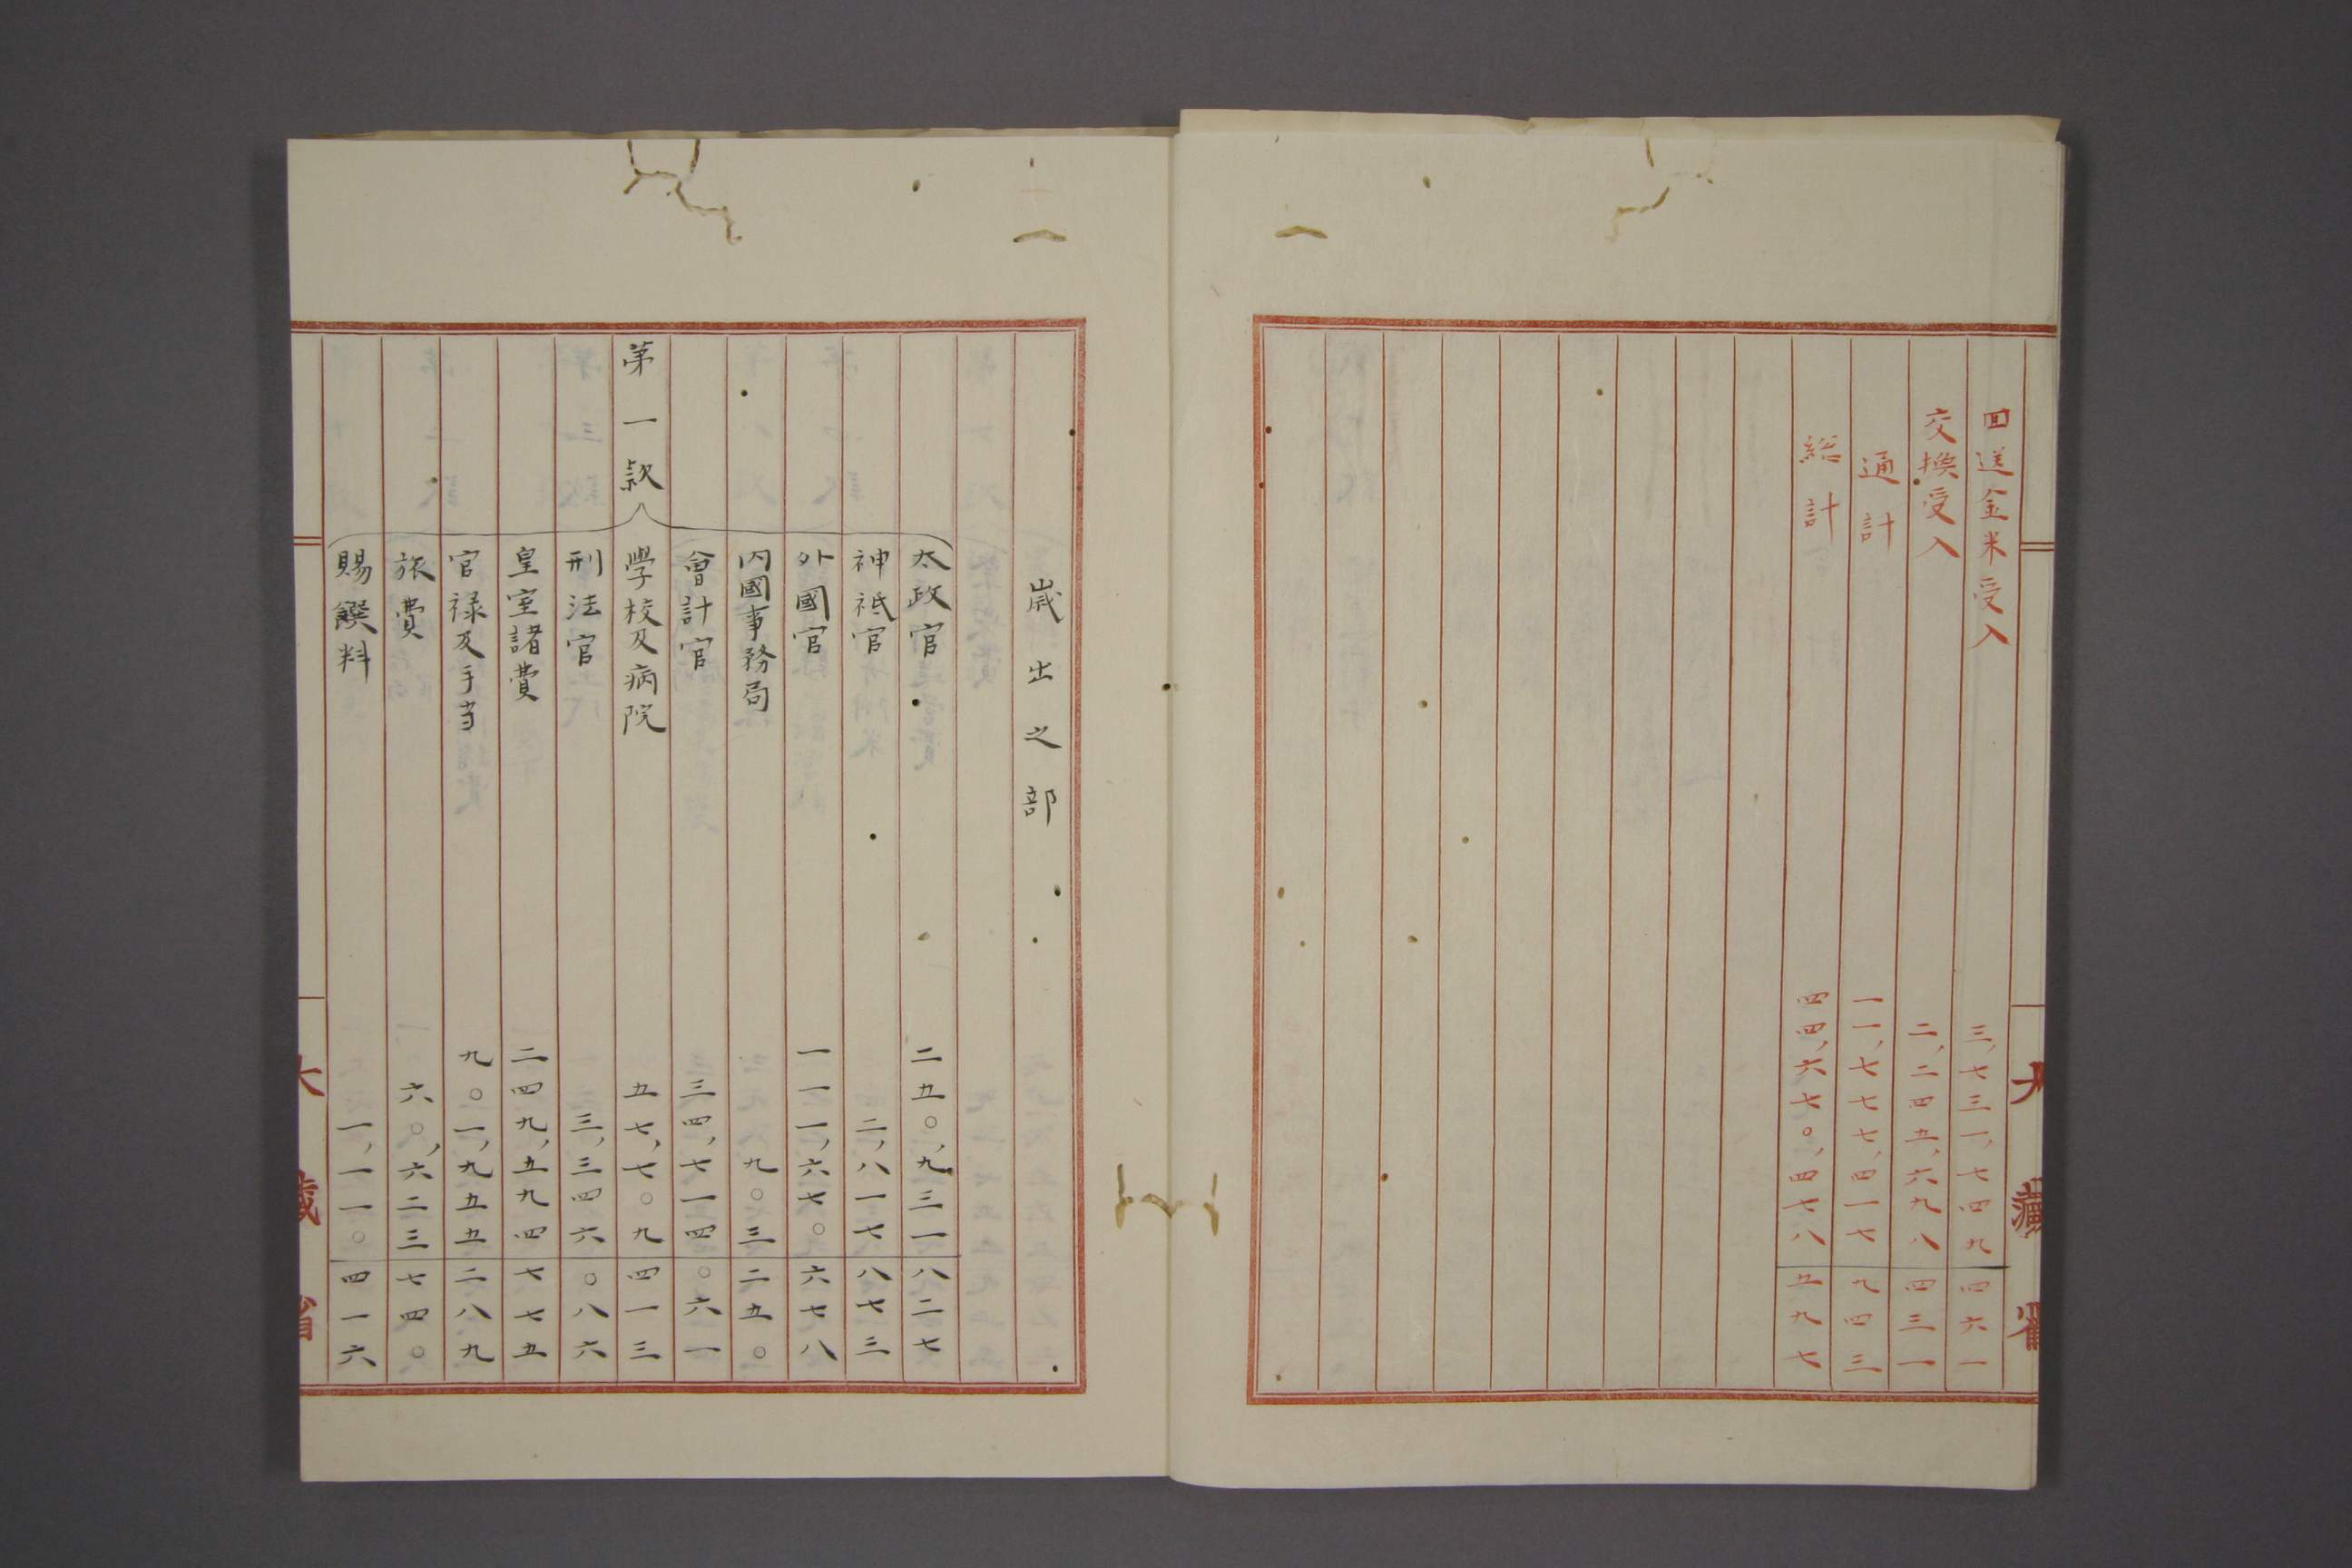 回送金米受入 三、七三一、七四九 四六一
交換受入 二、二四五、六九八 四三一
通計 一一、七七七、四一七 九四三
総計 四四、六七〇、四七八 五九七
大藏省
歳出之部
第一款
太政官 二五〇、九三一 八二七
神祇官 二、八一七 八七三
外國官 一一一、六七〇 六七八
内國事務局 九〇三 二五〇
會計官 三四、七一四 〇六一
學校及病院 五七、七〇九 四一三
刑法官 三、三四六 〇八六
皇室諸費 二四九、五九四 七七五
官禄及手当 九〇一、九五五 二八九
旅費 六〇、六二三 七四〇
賜饌料 一、一一〇 四一六
大藏省